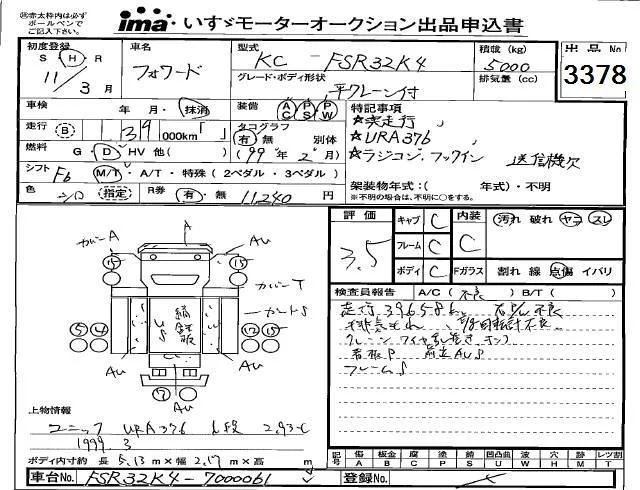 ㊟赤太枠内は必ず
ボールペンで
ご記入下さい。
ima いすゞモーターオークション出品申込書
初度登録 S H R 11/3月
車名 フォワード
型式 KC-FSR32K4
グレード・ボディ形状 平クレーン付
積載(kg) 5000
排気量(cc)
出品No 3378
車検 年 月・抹消
装備 AC PS PW
特記事項
☆実走行
☆URA376
☆ラジコン.フックイン 送信機欠
走行 B 39 000km「 」
タコグラフ 有・無 別体
(99年2月)
燃料 G D HV 他( )
シフト F6 M/T・A/T・特殊(2ペダル・3ペダル)
架装物年式:( 年式)・不明
※不明の場合は、不明に○をする。
色 シロ 指定 R券 有・無 11240円
評価 3.5
キャブ C 内装 C 汚れ 破れ ヤニ スレ
フレーム C
ボディ C Fガラス 割れ 線 点傷 イバリ
検査員報告 A/C(不良) B/T( )
走行39658k
排気もれ 回転計不良
クレーンワイヤ乱巻き
看板P 前立AUS
フレームS
カバーA A AU
15 15
カバーT
ガードS
縞鉄板
US
5 4 12 15
AU AU
7
AU
上物情報
ユニック URA376 6段 2.93t
1999.3
ボディ内寸約 長 5.13m×幅 2.17m×高 m
記号 傷A 板金B 腐C 塗P 錆S 凹凸曲U 波W 穴H 跡M レツ割T
車台No. FSR32K4-7000061
登録No.